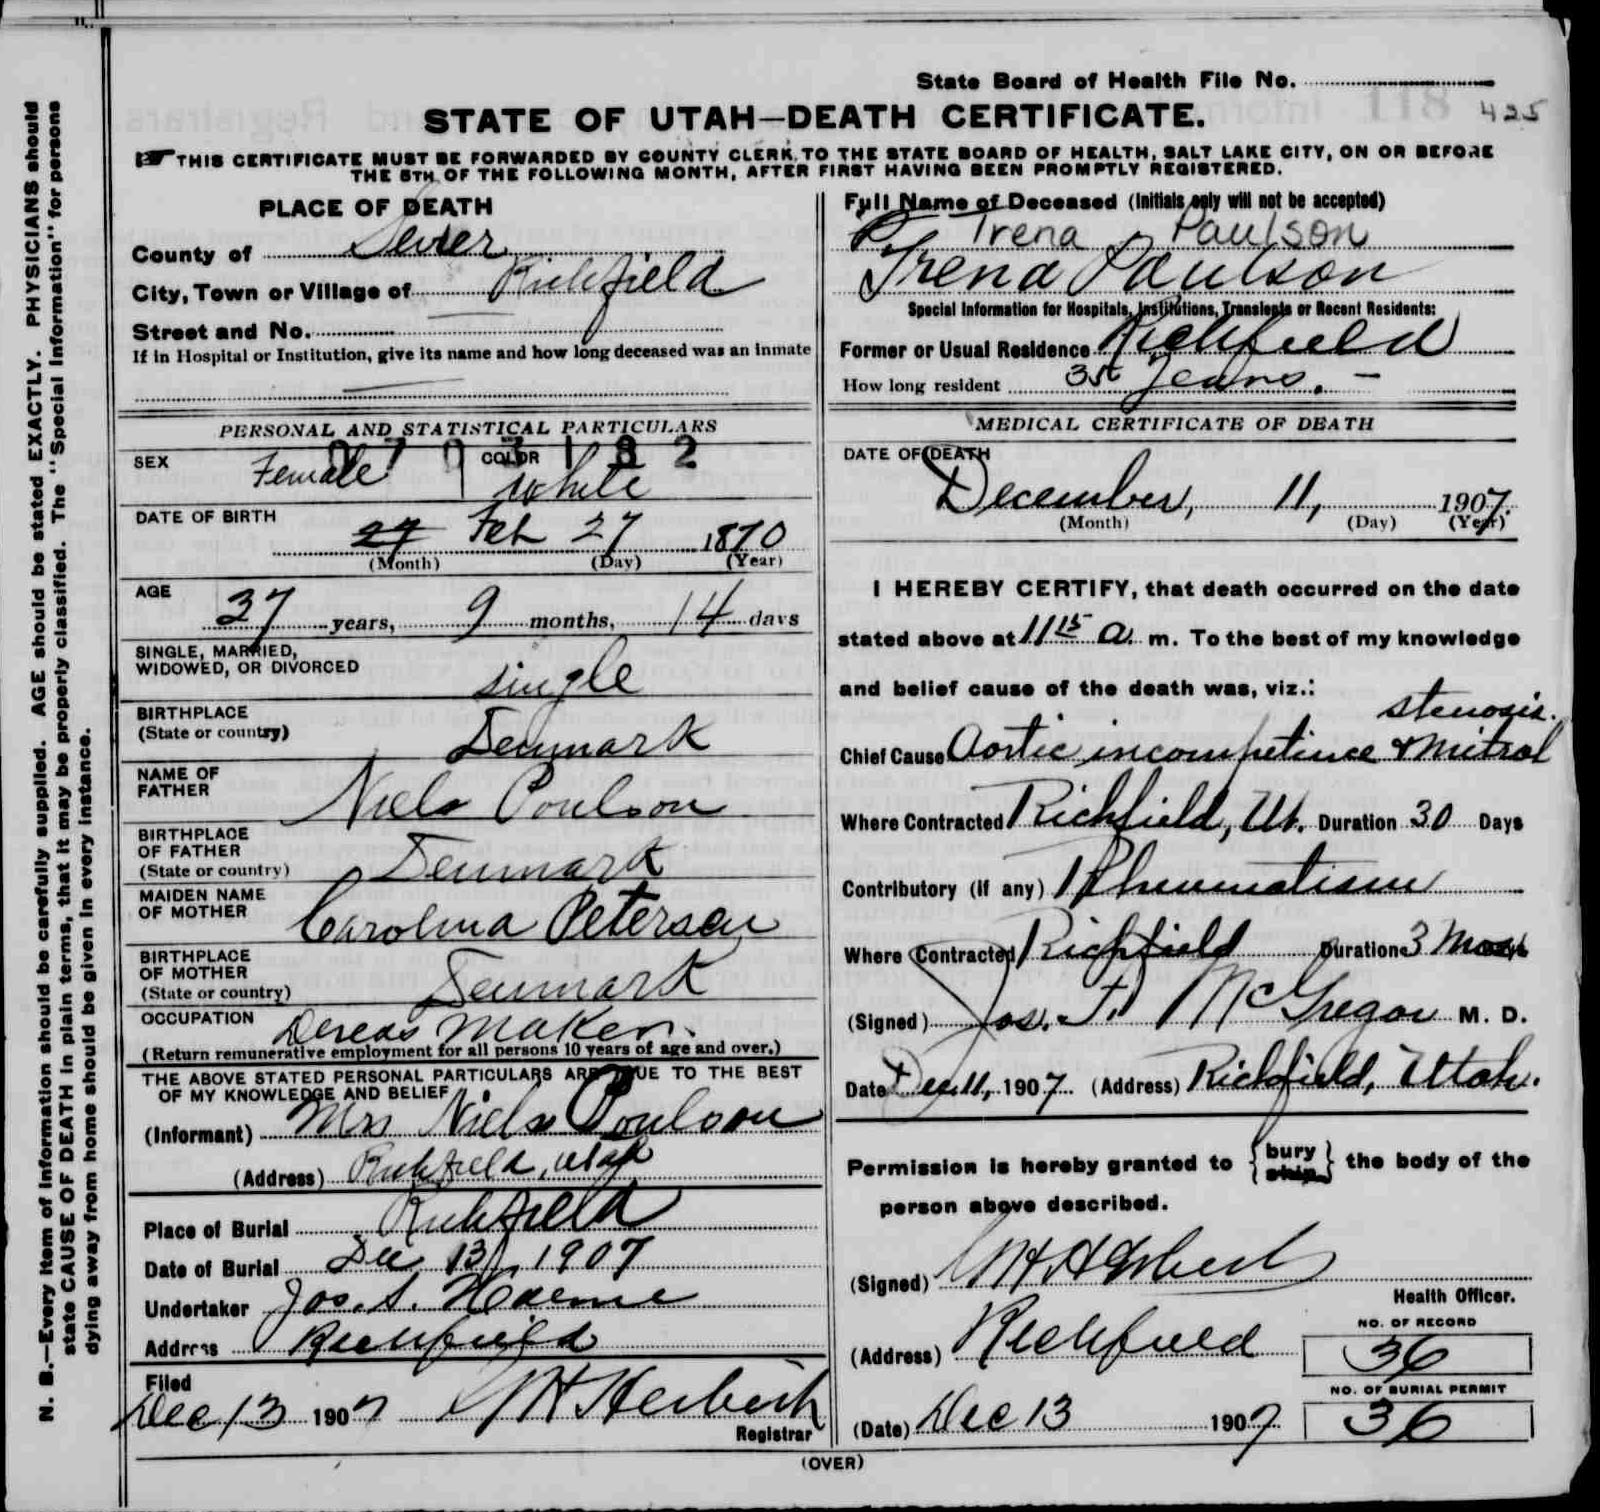 State Board of Health File No.
425
STATE OF UTAH—DEATH CERTIFICATE.
THIS CERTIFICATE MUST BE FORWARDED BY COUNTY CLERK TO THE STATE BOARD OF HEALTH, SALT LAKE CITY, ON OR BEFORE
THE 5TH OF THE FOLLOWING MONTH, AFTER FIRST HAVING BEEN PROMPTLY REGISTERED.
PLACE OF DEATH
County of Sevier
City, Town or Village of Richfield
Street and No.
If in Hospital or Institution, give its name and how long deceased was an inmate
Full Name of Deceased (Initials only will not be accepted)
Trena Paulson
Trena Paulson
Special Information for Hospitals, Institutions, Transients or Recent Residents:
Former or Usual Residence Richfield
How long resident 35 Years. —
PERSONAL AND STATISTICAL PARTICULARS
SEX Female COLOR White
DATE OF BIRTH
27 Feb 27 1870
(Month) (Day) (Year)
AGE
37 years, 9 months, 14 days
SINGLE, MARRIED,
WIDOWED, OR DIVORCED single
BIRTHPLACE
(State or country) Denmark
NAME OF
FATHER Niels Poulson
BIRTHPLACE
OF FATHER
(State or country) Denmark
MAIDEN NAME
OF MOTHER Carolina Petersen
BIRTHPLACE
OF MOTHER
(State or country) Denmark
OCCUPATION Dereas Maker.
(Return remunerative employment for all persons 10 years of age and over.)
THE ABOVE STATED PERSONAL PARTICULARS ARE TRUE TO THE BEST
OF MY KNOWLEDGE AND BELIEF
(Informant) Mrs Niels Poulson
(Address) Richfield, Utah
Place of Burial Richfield
Date of Burial Dec 13, 1907
Undertaker Jos. S. Horne
Address Richfield
Filed
Dec 13 1907 Herbert
Registrar
MEDICAL CERTIFICATE OF DEATH
DATE OF DEATH
December, 11, 1907.
(Month) (Day) (Year)
I HEREBY CERTIFY, that death occurred on the date
stated above at 11 15 a. m. To the best of my knowledge
and belief cause of the death was, viz.:
stenosis.
Chief Cause Aortic incompetence & Mitral
Where Contracted Richfield, Ut. Duration 30 Days
Contributory (if any) Rheumatism
Where Contracted Richfield Duration 3 Mos.
(Signed) Jos. F. McGregor M. D.
Date Dec 11, 1907 (Address) Richfield, Utah.
Permission is hereby granted to {bury ship} the body of the
person above described.
(Signed)
Health Officer.
(Address) Richfield
NO. OF RECORD
36
NO. OF BURIAL PERMIT
36
(Date) Dec 13 1907
(OVER)
N. B.—Every item of information should be carefully supplied. AGE should be stated EXACTLY. PHYSICIANS should
state CAUSE OF DEATH in plain terms, that it may be properly classified. The "Special Information" for persons
dying away from home should be given in every instance.